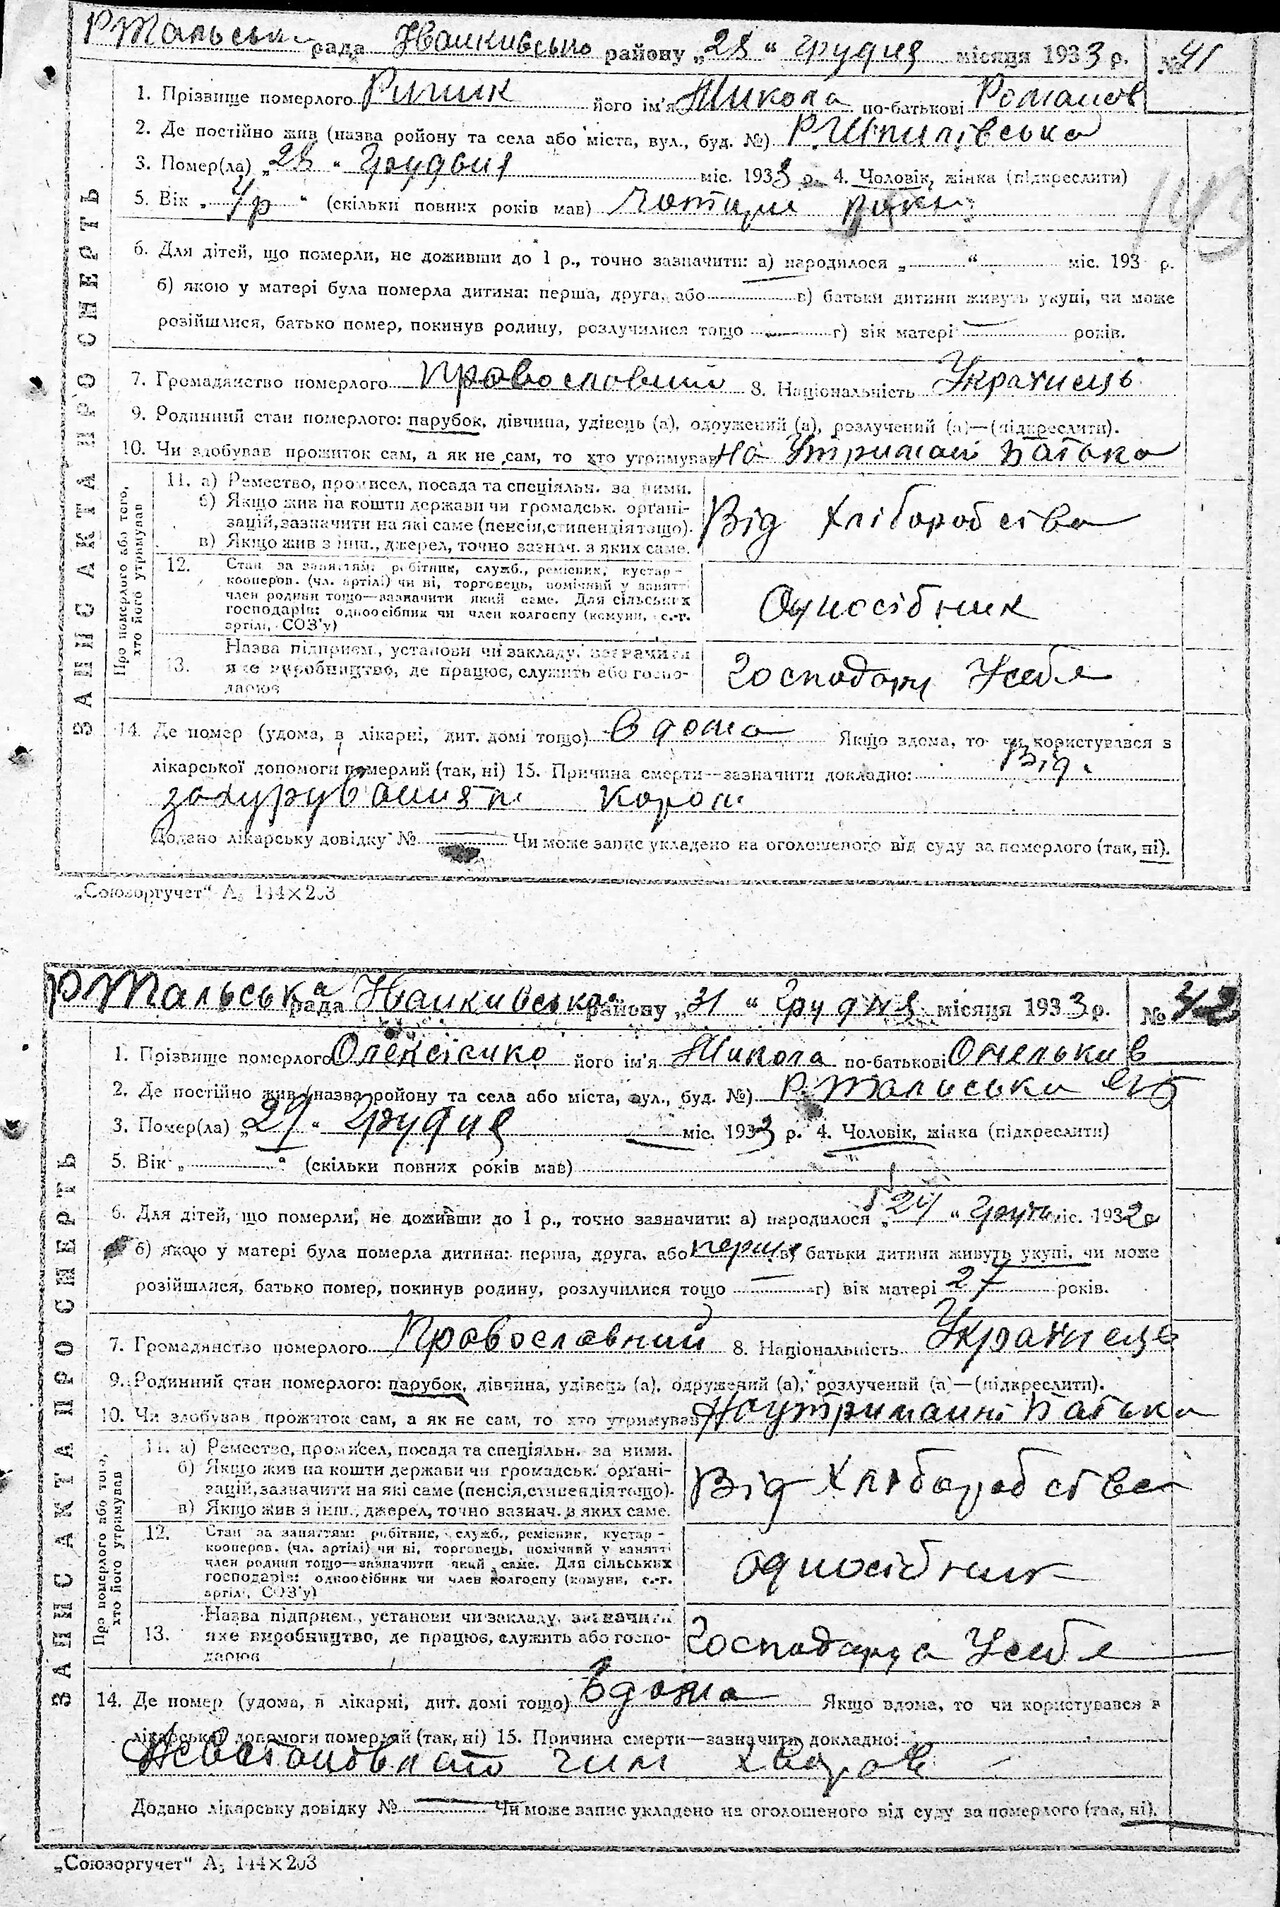 Р Тальська рада Іванкивсько району „28" грудня місяця 1933 р. № 41
ЗАПИС АКТА ПРО СМЕРТЬ
1. Прізвище померлого його ім'я Микола по-батькові Романов
2. Де постійно жив (назва ройону та села або міста, вул., буд. №)
3. Помер(ла) „28" грудня міс. 1933 р. 4. Чоловік, жінка (підкреслити)
5. Вік „4/р" (скільки повних років мав) чотири роки
6. Для дітей, що померли, не доживши до 1 р., точно зазначити: а) народилося „ " міс. 193 р.
б) якою у матері була померла дитина: перша, друга, або в) батьки дитини живуть укупі, чи може
розійшлися, батько помер, покинув родину, розлучилися тощо — г) вік матері — років.
7. Громадянство померлого Православний 8. Національність Украинець
9. Родинний стан померлого: парубок, дівчина, удівець (а), одружений (а), розлучений (а)—(підкреслити).
10. Чи здобував прожиток сам, а як не сам, то хто утримував на Утриман Батька
Про померлого або того, хто його утримував
11. а) Ремество, промисел, посада та спеціяльн. за ними.
б) Якщо жив на кошти держави чи громадськ. орґані-
зацій, зазначити на які саме (пенсія, стипендія тощо).
в) Якщо жив з інш., джерел, точно зазнач. з яких саме.
Від Хліборобства
12. Стан за заняттям: робітник, служб., ремісник, кустар-
кооперов. (чл. артілі) чи ні, торговець, помічний у занятті
член родини тощо—зазначити який саме. Для сільських
господарів: одноосібник чи член колгоспу (комуни, с.-г.
артілі, СОЗ'у)
Односібник
13. Назва підприєм., установи чи закладу, зазначити
яке виробництво, де працює, служить або госпо-
дарює
Господарує Усебе
14. Де помер (удома, в лікарні, дит. домі тощо) вдома Якщо вдома, то чи користувався з
лікарської допомоги померлий (так, ні) 15. Причина смерти—зазначити докладно: Від
захурування
Додано лікарську довідку № — Чи може запис укладено на оголошеного від суду за померлого (так, ні).
„Союзоргучет" А₅ 144×203
Р Тальська рада Іванкивська району „31" Грудня місяця 1933 р. № 42
ЗАПИС АКТА ПРО СМЕРТЬ
1. Прізвище померлого Олексієнко його ім'я Микола по-батькові Омелькив
2. Де постійно жив (назва ройону та села або міста, вул., буд. №) Р. Тальська
3. Помер(ла) грудня — міс. 1933 р. 4. Чоловік, жінка (підкреслити)
5. Вік „ " (скільки повних років мав)
6. Для дітей, що померли, не доживши до 1 р., точно зазначити: а) народилося міс. 1932
б) якою у матері була померла дитина: перша, друга, або перша в) батьки дитини живуть укупі, чи може
розійшлися, батько помер, покинув родину, розлучилися тощо — г) вік матері 27 років.
7. Громадянство померлого Православний 8. Національність Украинець
9. Родинний стан померлого: парубок, дівчина, удівець (а), одружений (а), розлучений (а)—(підкреслити).
10. Чи здобував прожиток сам, а як не сам, то хто утримував Наутриманні Батька
Про померлого або того, хто його утримував
11. а) Ремество, промисел, посада та спеціяльн. за ними.
б) Якщо жив на кошти держави чи громадськ. орґані-
зацій, зазначити на які саме (пенсія, стипендія тощо).
в) Якщо жив з інш., джерел, точно зазнач. з яких саме.
Від Хліборобства
12. Стан за заняттям: робітник, служб., ремісник, кустар-
кооперов. (чл. артілі) чи ні, торговець, помічний у занятті
член родини тощо—зазначити який саме. Для сільських
господарів: одноосібник чи член колгоспу (комуни, с.-г.
артілі, СОЗ'у)
односібник
13. Назва підприєм., установи чи закладу, зазначити
яке виробництво, де працює, служить або госпо-
дарює
Господарує Усебе
14. Де помер (удома, в лікарні, дит. домі тощо) Вдома Якщо вдома, то чи користувався з
лікарської допомоги померлий (так, ні) 15. Причина смерти—зазначити докладно:
Невстановлено чим хворів
Додано лікарську довідку № — Чи може запис укладено на оголошеного від суду за померлого (так, ні).
„Союзоргучет" А₅ 144×203